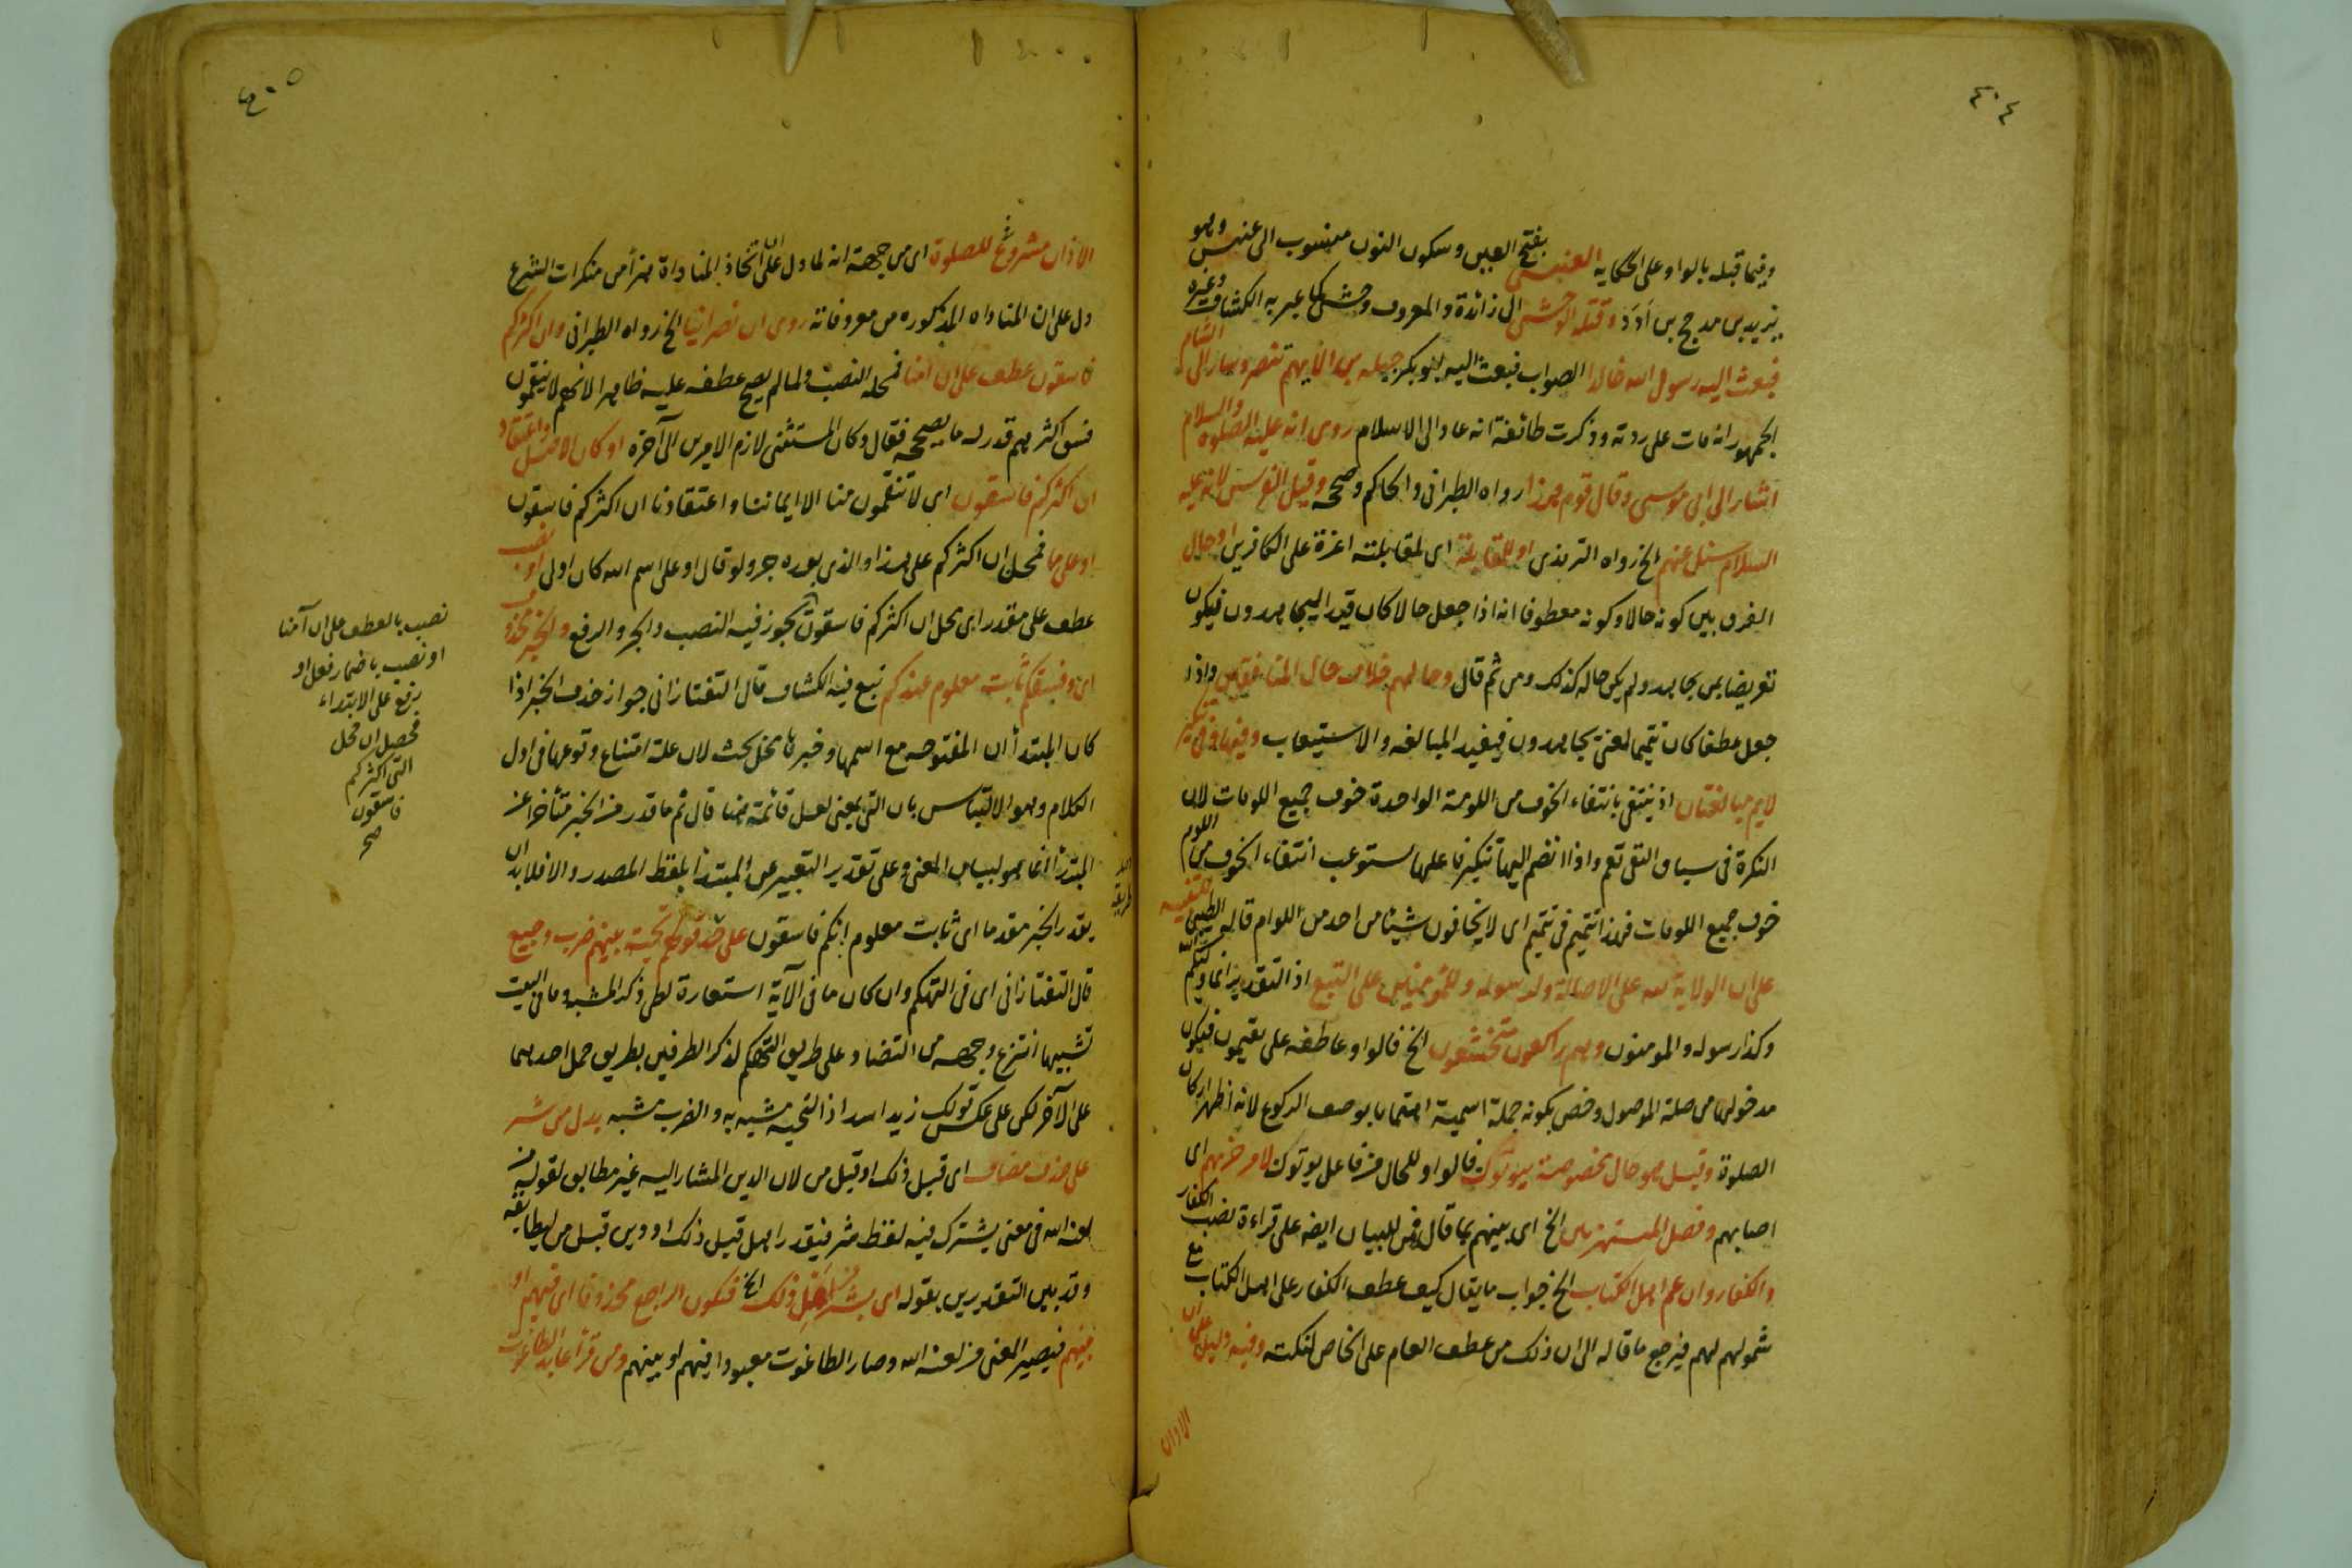 ٤٠٤
وفيما قبله بالواو على الحكاية العنسى بفتح العين وسكون النون منسوب الى عنس وهو
يزيد بن مدحج بن أدد وقتله الوحشى ال زائدة والمعروف وحشى كما عبر به الكشاف وغيره
فبعث اليه رسول الله خالدا الصواب فبعث اليه ابو بكر جبلة بن الايهم تنصر وسار الى الشام
الجمهور انه مات على ردته وذكرت طائفة انه عاد الى الاسلام روى انه عليه الصلوة والسلام
اشار الى ابى موسى وقال قوم هذا رواه الطبرانى والحاكم وصححه وقيل الفرس لانه عليه
السلام سئل عنهم الخ رواه الترمذى او للمقابلة اى لمقابلته اعزة على الكافرين او حال
الفرق بين كونه حالا وكونه معطوفا انه اذا جعل حالا كان قيدا ليجاهدون فيكون
تعريضا بمن يجاهد ولم يكن حاله كذلك ومن ثم قال وحالهم خلاف حال المنافقين واذا
جعل عطفا كان تتميما لمعنى يجاهدون فيفيد المبالغة والاستيعاب وفيها وفى تنكير
لايم مبالغتان اذ ينتفى بانتفاء الخوف من اللومة الواحدة خوف جميع اللومات لان
النكرة فى سياق النفى تعم واذا انضم اليها تنكير فاعلها يستوعب انتفاء الخوف من اللوم
خوف جميع اللومات فهذا تتميم فى تتميم اى لا يخافون شيئا من احد من اللوام قاله الطيبى للتنبيه
على ان الولاية لله على الاصالة ولرسوله وللمؤمنين على التبع اذ التقدير انما وليكم الله
وكذا رسوله والمومنون وهم راكعون متخشعون الخ فالواو عاطفة على يقيمون فيكون
مدخولها من صلة الموصول وخص بكونه جملة اسمية اهتماما بوصف الركوع لانه اظهر اركان
الصلوة وقيل هو حال مخصوصة بيوتون فالواو للحال من فاعل يوتون لامر حزبهم اى
اصابهم وفصل المستهزئين الخ اى بينهم بما قال فمن للبيان ايضه على قراءة نصب الكفار
والكفار وان عم اهل الكتاب الخ جواب ما يقال كيف عطف الكفار على اهل الكتاب مع
شمولهم لهم فيرجع ما قاله الى ان ذلك من عطف العام على الخاص لنكتة وفيه دليل على ان
الاذان
٤٠٥
الاذان مشروع للصلوة اى من جهة انه لما دل على ان اتخاذ المناداة هزأ من منكرات الشرع
دل على ان المناداه المذكوره من معروفاته روى ان نصرانيا الخ رواه الطبرانى وان اكثركم
فاسقون عطف على ان آمنا فمحله النصب ولما لم يصح عطفه عليه ظاهرا لانهم لا ينقمون
فسق اكثرهم قدر له ما يصححه فقال وكان المستثنى لازم الامرين الى آخره او كان الاصل واعتقاد
ان اكثركم فاسقون اى لا تنقمون منا الا ايماننا واعتقادنا ان اكثركم فاسقون
او على ما فمحل ان اكثركم على هذا والذى بعده جر ولو قال او على اسم الله كان اولى او نصب
عطف على مقدر اى محل ان اكثركم فاسقون يجوز فيه النصب والجر والرفع والخبر محذوف
اى وفسقكم ثابت معلوم عندكم تبع فيه الكشاف قال التفتازانى جواز حذف الخبر اذا
كان المبتدأ ان المفتوحه مع اسمها وخبرها محل بحث لان علة امتناع وقوعها فى اول
الكلام وهو الالتباس بان التى بمعنى لعل قائمة هنا قال ثم ما قدر من الخبر متأخرا عن
المبتدأ انما هو لبيان المعنى وعلى تقدير التعبير عن المبتدأ بلفظ المصدر والا فلا بد ان
يقدر الخبر مقدما اى ثابت معلوم انكم فاسقون على حد قولهم تحية بينهم ضرب وجيع
قال التفتازانى اى فى التهكم وان كان ما فى الآية استعارة لطى ذكر المشبه وما فى البيت
تشبيها انتزع وجهه من التضاد على طريق التهكم لذكر الطرفين بطريق حمل احدهما
على الآخر لكن على عكس قولك زيد اسد اذ التحيه مشبه به والضرب مشبه بدل من شر
على حذف مضاف اى قبل ذلك او قبل من لان الدين المشار اليه غير مطابق لقوله من
لعنه الله فى معنى يشترك فيه لفظ شر فيقدر اهل قبل ذلك او دين قبل من ليطابقه
وقد بين التقديرين بقوله اى بشر من اهل ذلك الخ فيكون الراجع محذوفا اى فيهم او
بينهم فيصير المعنى من لعنه الله وصار الطاغوت معبودا فيهم او بينهم ومن قرأ عابد الطاغوت
نصب بالعطف على ان آمنا
او نصب باضمار فعل او
برفع على الابتداء
فحصل ان محل
ان اكثركم
فاسقون
صح